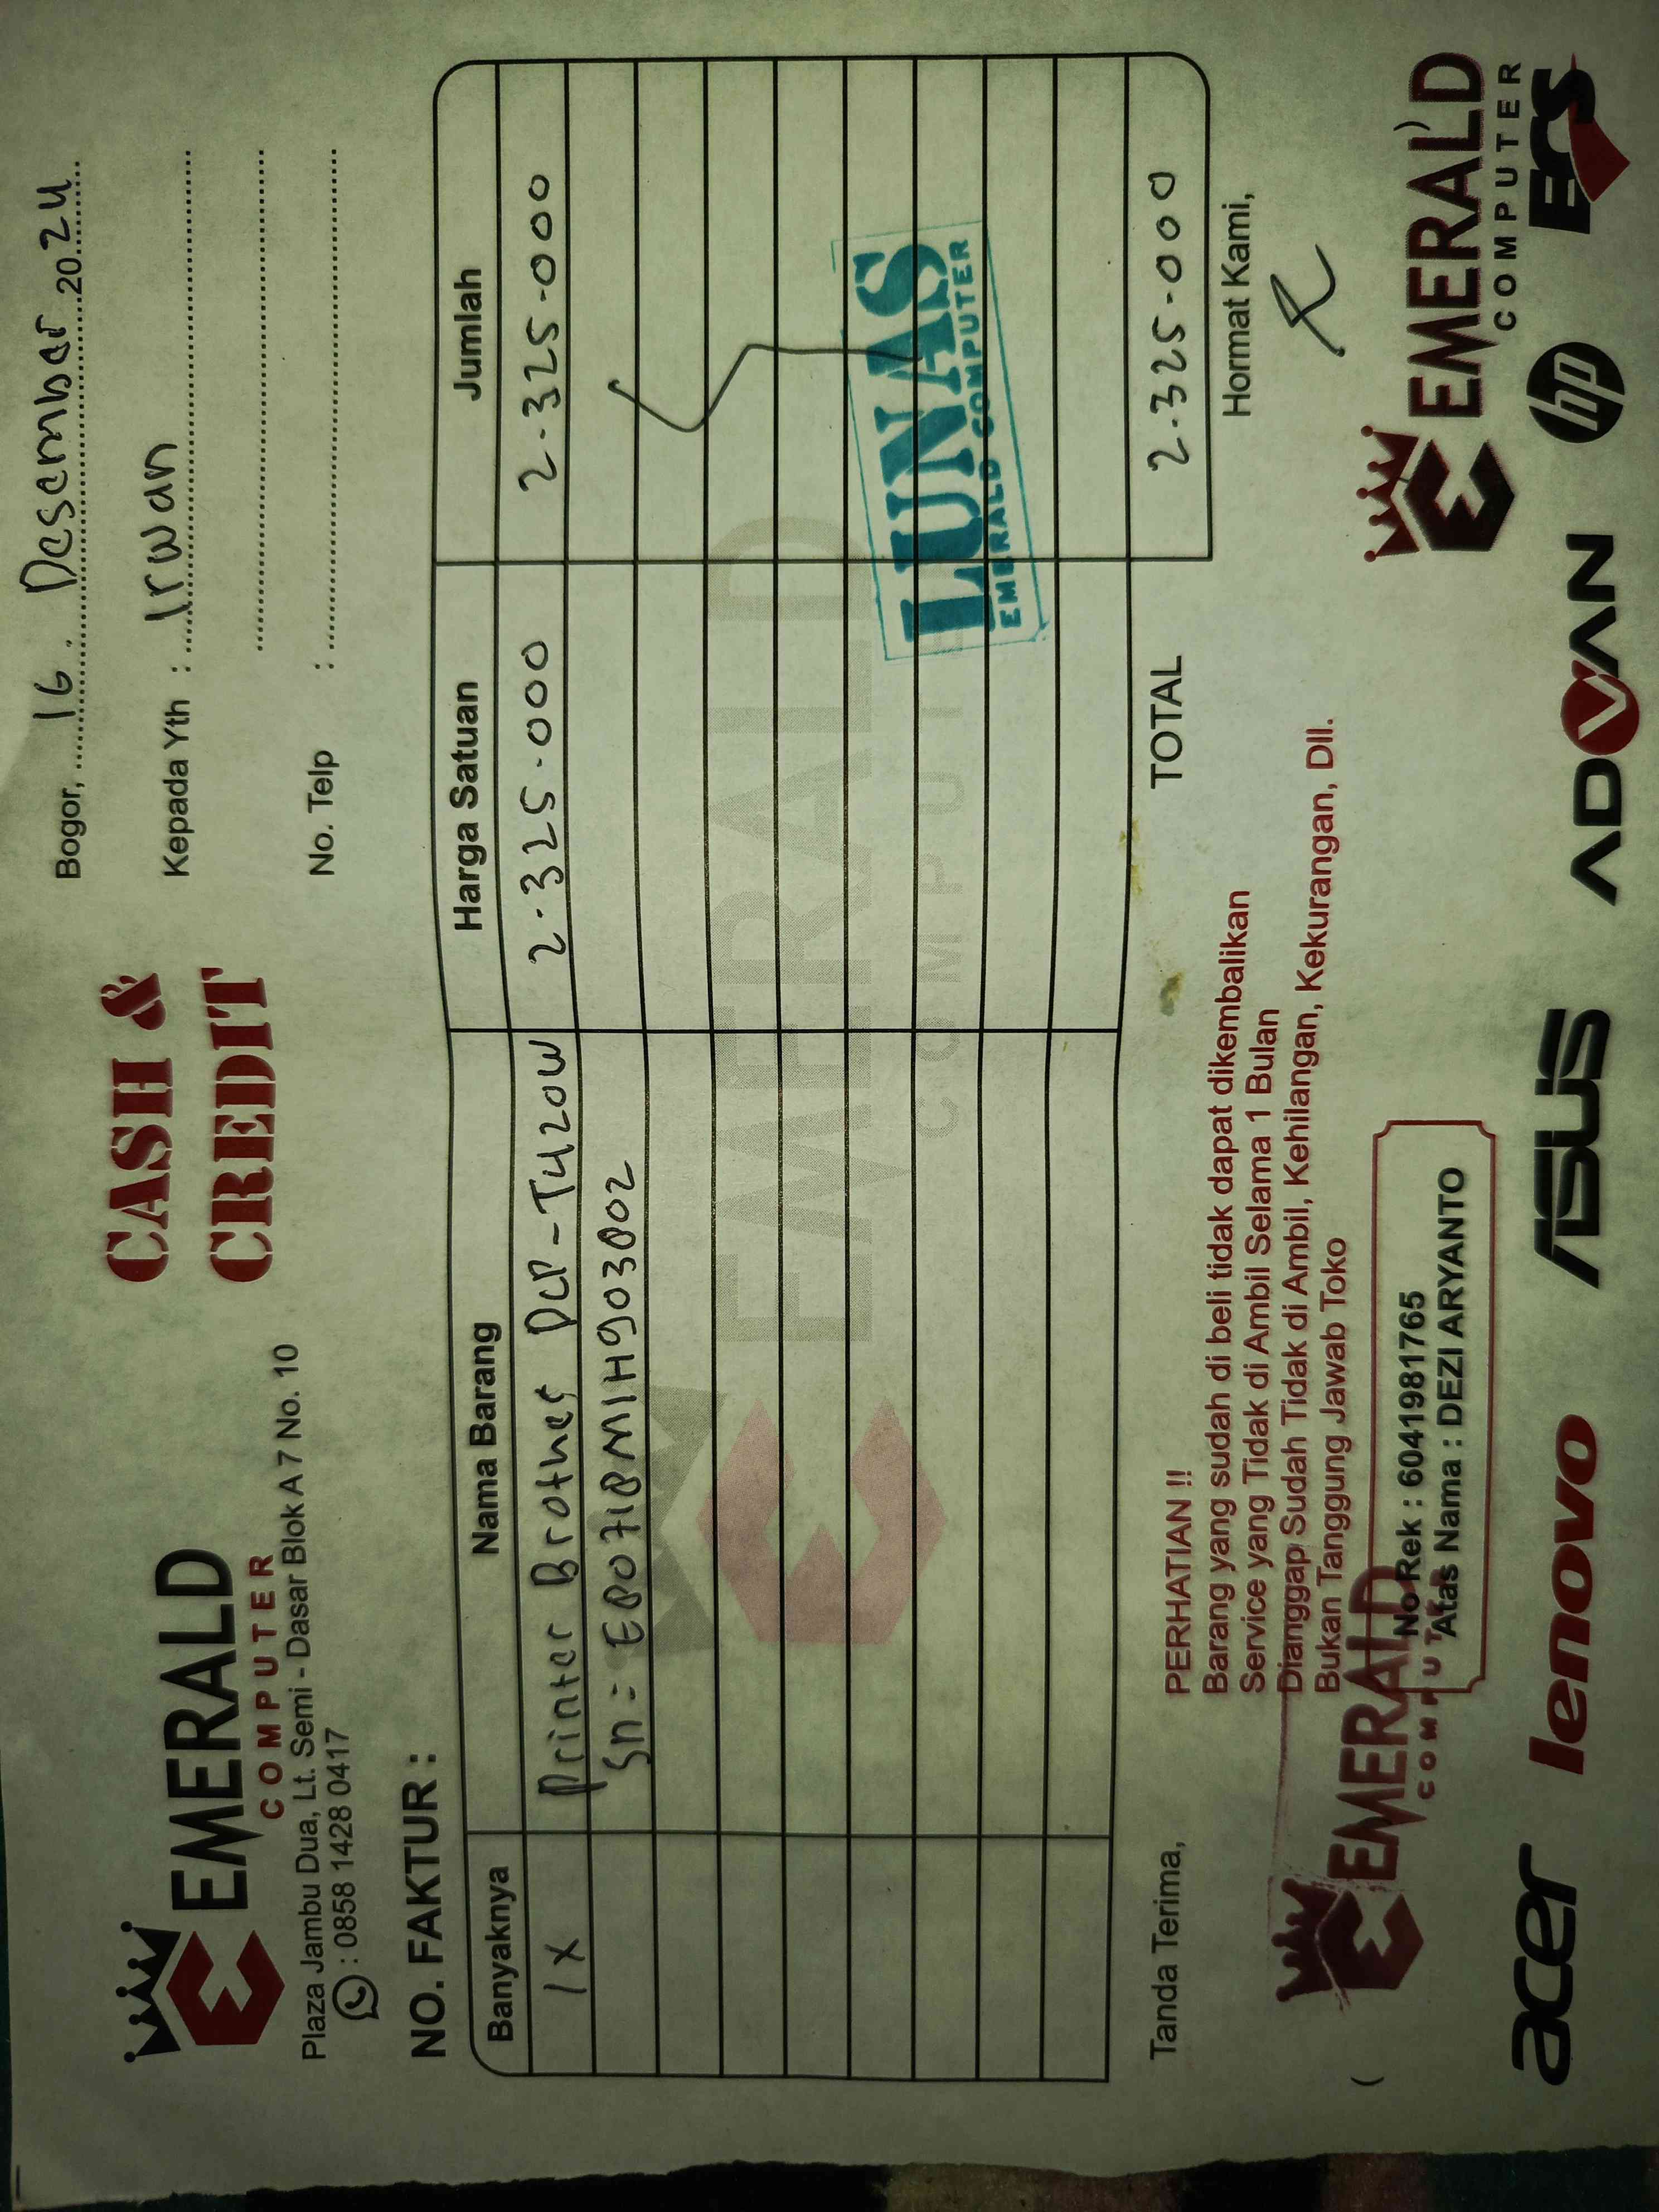 EMERALD
COMPUTER
Plaza Jambu Dua, Lt. Semi - Dasar Blok A 7 No. 10
: 0858 1428 0417
CASH &
CREDIT
Bogor, 16. Desember 2024
Kepada Yth : Irwan
No. Telp :
NO. FAKTUR :
Banyaknya Nama Barang Harga Satuan Jumlah
1x Printer Brother DCP-T420W 2.325.000 2.325.000
Sn = E80718M1H903802
EMERALD
COMPUTER
LUNAS
EMERALD COMPUTER
TOTAL 2.325.000
Tanda Terima,
PERHATIAN !!
Barang yang sudah di beli tidak dapat dikembalikan
Service yang Tidak di Ambil Selama 1 Bulan
Dianggap Sudah Tidak di Ambil, Kehilangan, Kekurangan, Dll.
Bukan Tanggung Jawab Toko
Hormat Kami,
EMERALD
COMPUTER
No Rek : 6041981765
Atas Nama : DEZI ARYANTO
EMERALD
COMPUTER
acer lenovo ASUS ADVAN hp ECS